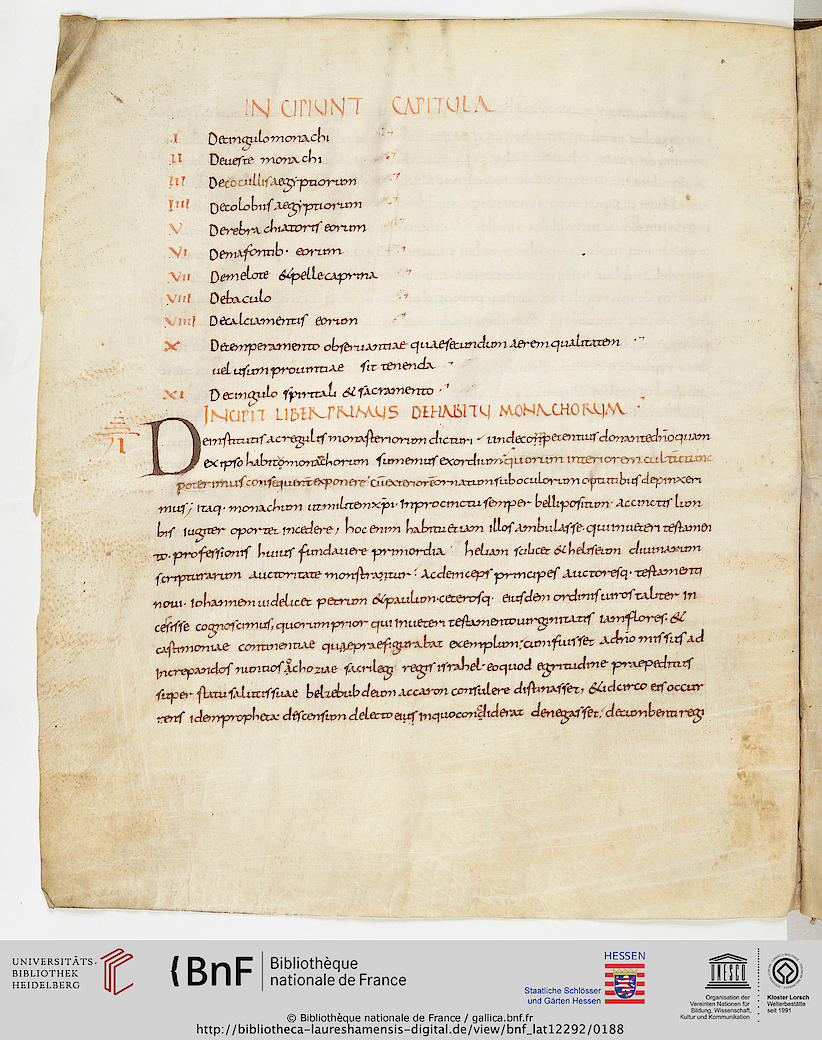 IN CIPIUNT CAPITULA
I Decingulo monachi
II Deueste monachi
III Decocullis aegyptiorum
IIII Decolobiis aegyptiorum
V Derebrachiatoris eorum
VI Demafortib· eorum
VII Demelote & pelle caprina
VIII Debaculo
VIIII Decalciamentis eorum
X Detemperamento obseruantiae quaesecundum aerem qualitatem
uel usum prouintiae sit tenenda
XI Decingulo spiritali & sacramento
INCIPIT LIBER PRIMUS DEHABITU MONACHORUM
I
Deinstitutis acregulis monasteriorum dicturi undecompetentius donante dño quam
exipso habitomonachorum sumemus exordium quorum interiorem cultum tunc
poterimus consequenter exponere cuexteriorem ornatum sub oculorum optutibus depinxeri
mus; itaq· monachum utmilitem xpi inprocinctu semper belliposition accinctis lum
bis iugiter oportet incedere, hoc enim habitu etiam illos ambulasse qui inueteri testamen
to professionis huius fundauere primordia heliam scilicet & heliseum diuinarum
scripturarum auctoritate monstrantur· Acdeinceps principes auctoresq· testamenti
noui· Iohannem uidelicet petrum & paulum ceterosq· eiusdem ordinis uiros taliter in
cessisse cognoscimus, quorum prior qui inueteri testamento uirginitatis iamflores &
castimoniae continentiae quae praefigurabat exemplum, cum fuisset adno missus ad
increpandos nuntios achoziae sacrilegi regis israhel eoquod egritudine praepeditus
super statu salutis suae belzebub deum accaron consulere distinasset, & idcirco eis occur
rens idempropheta descensum delecto eius inquoconciderat denegasset, decumbenti regi
UNIVERSITÄTS-
BIBLIOTHEK
HEIDELBERG
BnF
Bibliothèque
nationale de France
HESSEN
Staatliche Schlösser
und Gärten Hessen
UNESCO
Organisation der
Vereinten Nationen für
Bildung, Wissenschaft,
Kultur und Kommunikation
Kloster Lorsch
Welterbestätte
seit 1991
© Bibliothèque nationale de France / gallica.bnf.fr
http://bibliotheca-laureshamensis-digital.de/view/bnf_lat12292/0188